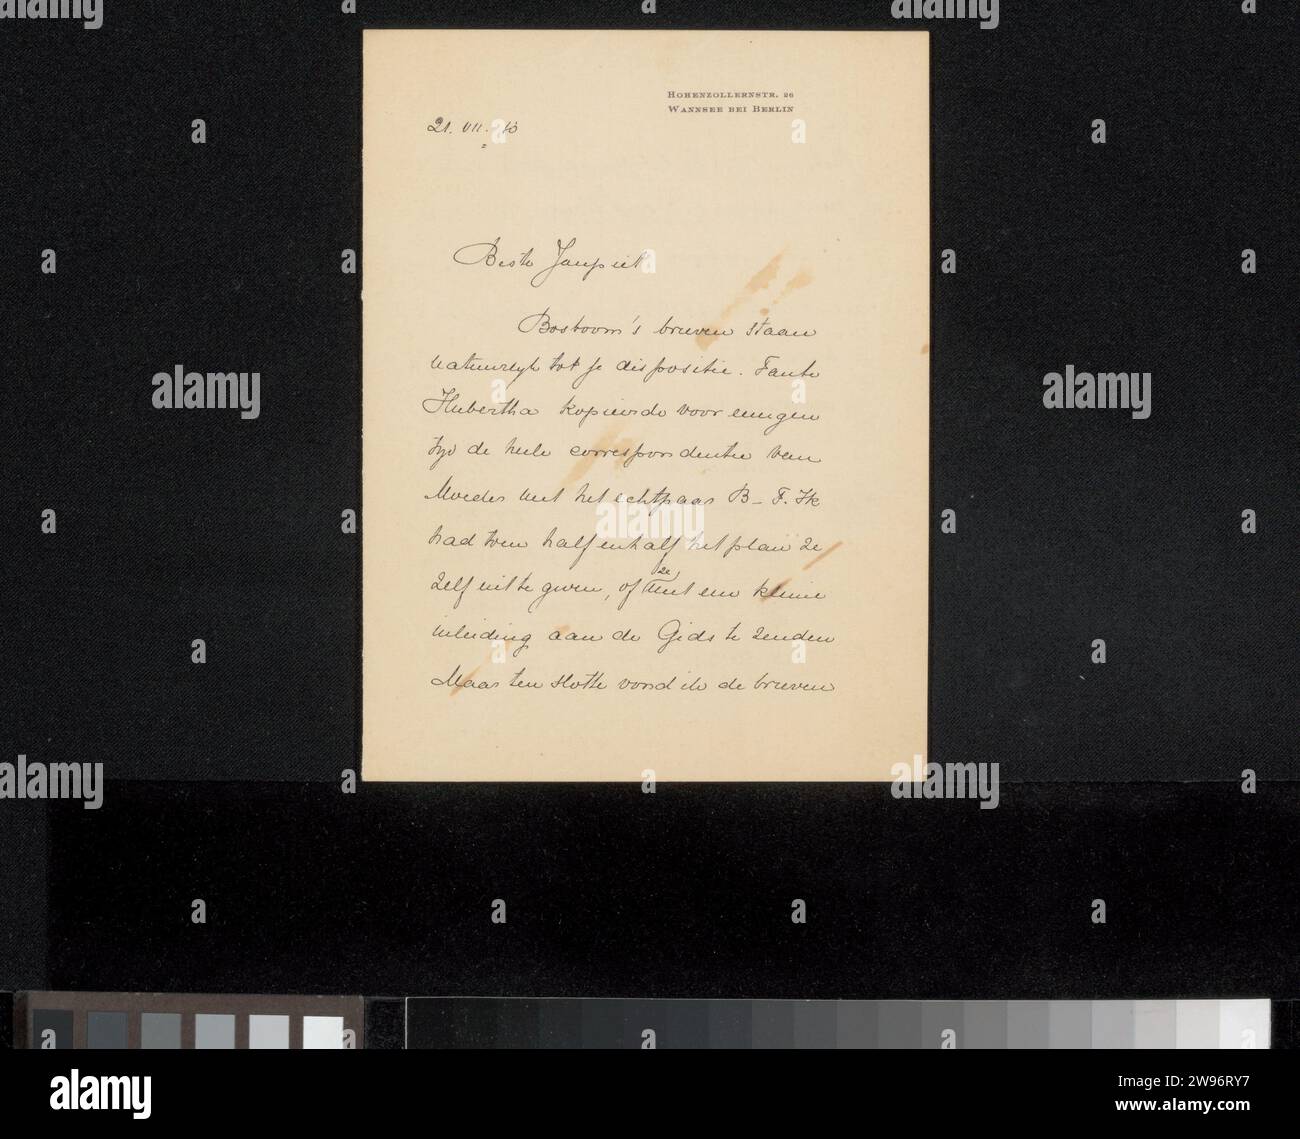 HOHENZOLLERNSTR. 26
WANNSEE BEI BERLIN
21. VII. 10
Beste Jaupiet
Bosboom's brieven staan
natuurlijk tot je dispositie. Tante
Hubertha kopieerde voor eenigen
tijd de heele correspondentie van
Moeder met het echtpaar B–T. Ik
had toen half en half het plan ze
zelf uit te geven, of ze met een kleine
inleiding aan de Gids te zenden
Maar ten slotte vond ik de brieven
alamy
Image ID: 2W96RY7
www.alamy.com